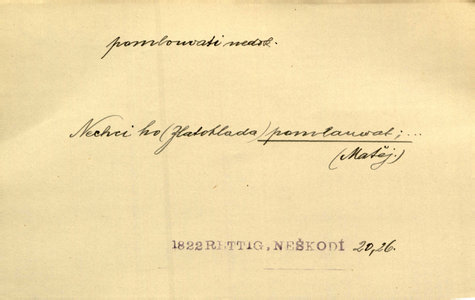 pomlouvati nedok.
Nechci ho (Zlatohlada) pomlauwat; ...
(Matěj.)
1822 RETTIG, NEŠKODÍ 20,26.